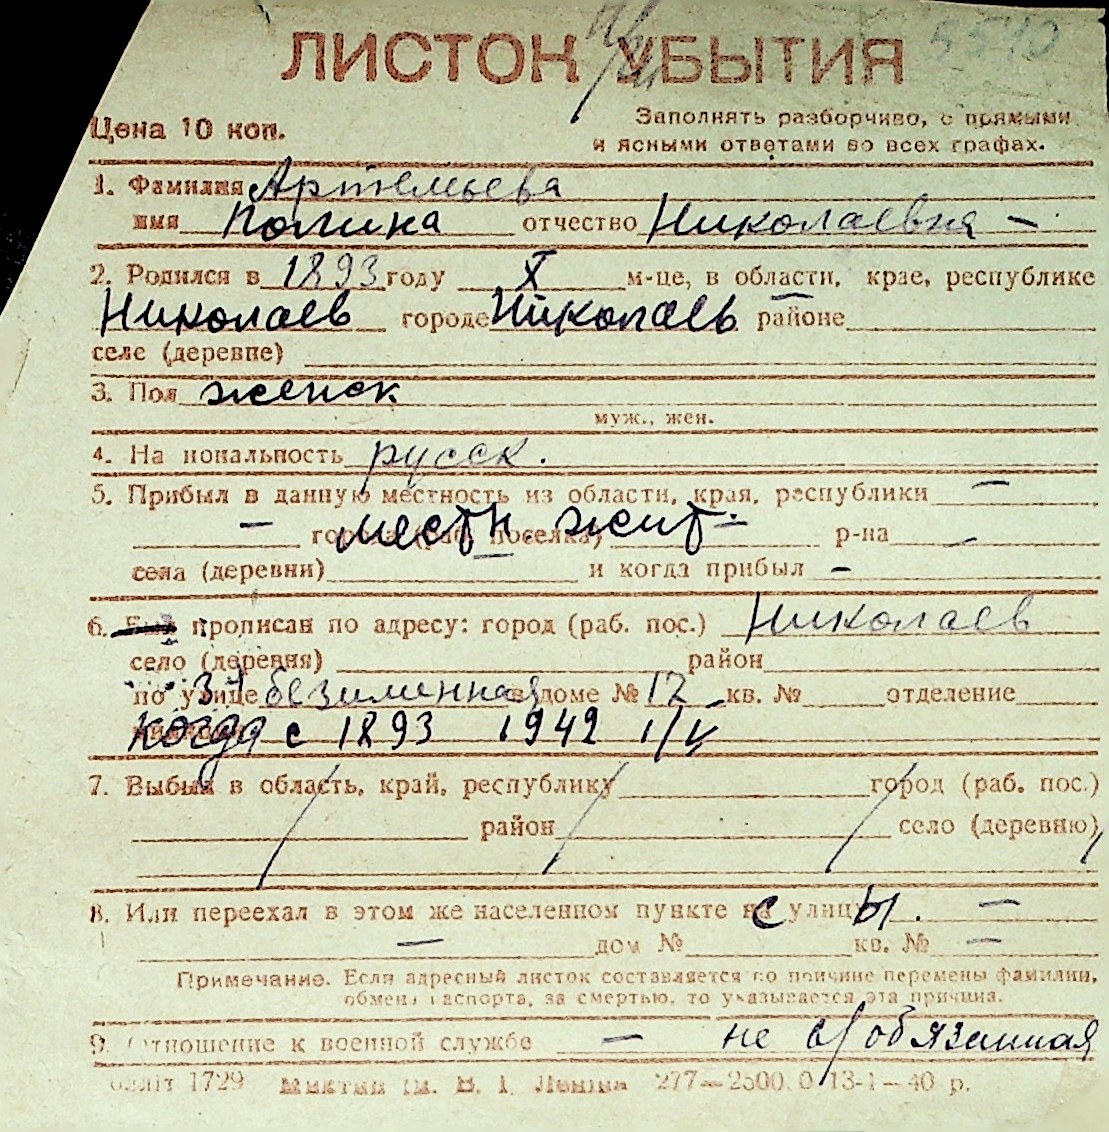 5540
ЛИСТОК УБЫТИЯ
Цена 10 коп.
Заполнять разборчиво, с прямыми
и ясными ответами во всех графах.
1. Фамилия Артемьева
имя Полина отчество Николаевна —
2. Родился в 1893 году X м-це, в области, крае, республике
Николаев городе Николаев районе
селе (деревне)
3. Пол женск
муж., жен.
4. На иональность русск.
5. Прибыл в данную местность из области, края, республики —
— города (раб. поселка) местн. жит. — р-на —
села (деревни) — и когда прибыл —
6. прописан по адресу: город (раб. пос.) Николаев
село (деревня) район
по улице 3я безименная в доме № 12 кв. № отделение
когда с 1893 1942 1/V
7. Выбыл в область, край, республику город (раб. пос.)
район село (деревню)
8. Или переехал в этом же населенном пункте на улицу с ы. —
— дом № кв. № —
Примечание. Если адресный листок составляется по причине перемены фамилии,
обмена паспорта, за смертью, то указывается эта причина.
9. Отношение к военной службе — не в/обязанная
1729 им. В. І. Леніна 277—2500.0 13-1—40 р.